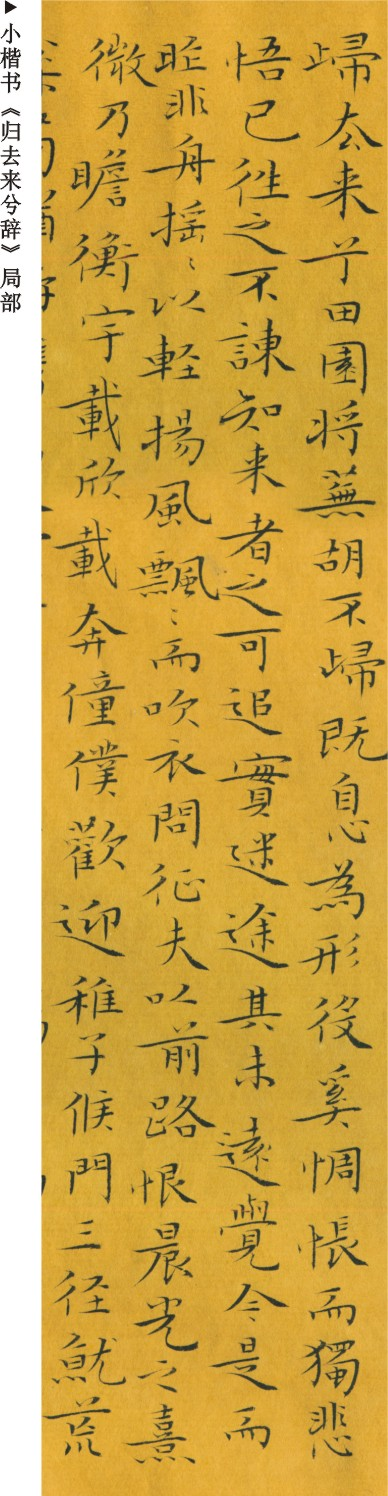 ▶小楷书《归去来兮辞》局部
歸去来兮田園将蕪胡不歸既息為形役奚惆悵而獨悲
悟已往之不諫知来者之可追實迷途其未遠覺今是而
昨非舟摇〻以軽揚風飄〻而吹衣問征夫以前路恨晨光之熹
微乃瞻衡宇載欣載奔僮僕歡迎稚子候門三径就荒